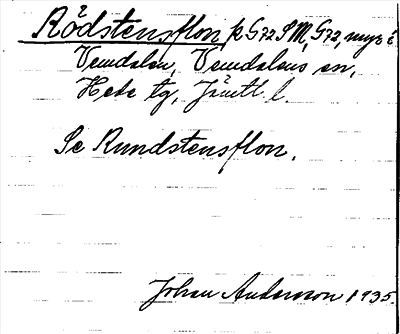 Rödstensflon på G72 SM, G72, myr i
Vemdalen, Vemdalens sn,
Hede tg, Jämtl. l.
Se Rundstensflon.
Johan Anderson 1935.